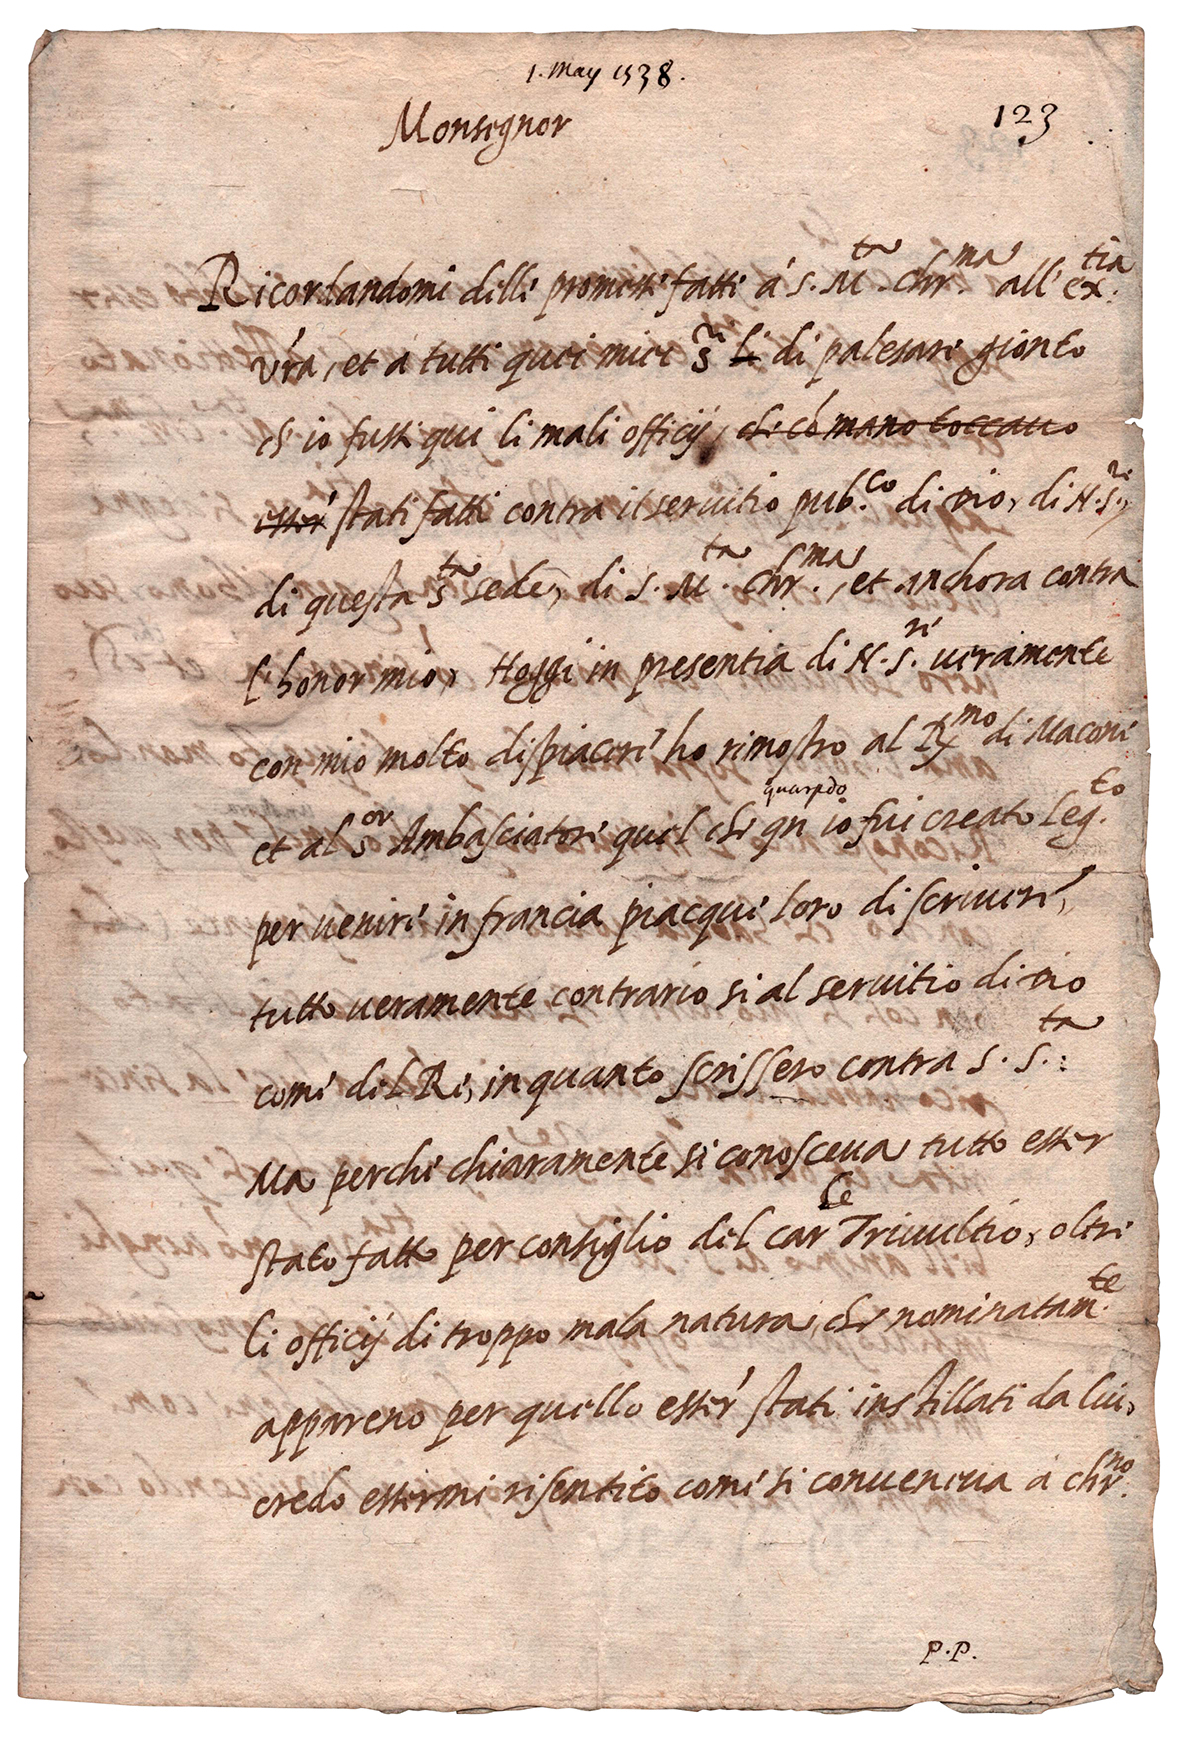 1. May 1538.
Monsegnor
123
Ricordandomi delle promesse fatte á S. M.ta Chr.ma all' ex.tia
v'ra, et a tutti quei miei s.ri li di palesare gionto
ch' io fusse qui li mali officij, che có mano toccavo
esser stati fatti contra il servitio pub.co di Dio, di N. S.re,
di questa s.ta sede, di S. M.ta Chr.ma, et anchora contra
l'honor mio, Hoggi in presentia di N. S.re veramente
con mio molto dispiacere ho rimostro al R.mo di Macone
et al s.or Ambasciatore quel che qn io fui creato Leg.to
quando
per venire in francia piacque loro di scrivere,
tutto veramente contrario si al servitio di Dio
come del Re, in quanto scrissero contra S. S.ta:
Ma perche chiaramente si conosceva tutto esser
stato fatto per consiglio del car.le Trivultio, oltre
li officij di troppo mala natura, che nominatam.te
appareno per quello esser stati instillati da lui,
credo essermi risentito come si conveneva a chr.no
P.P.